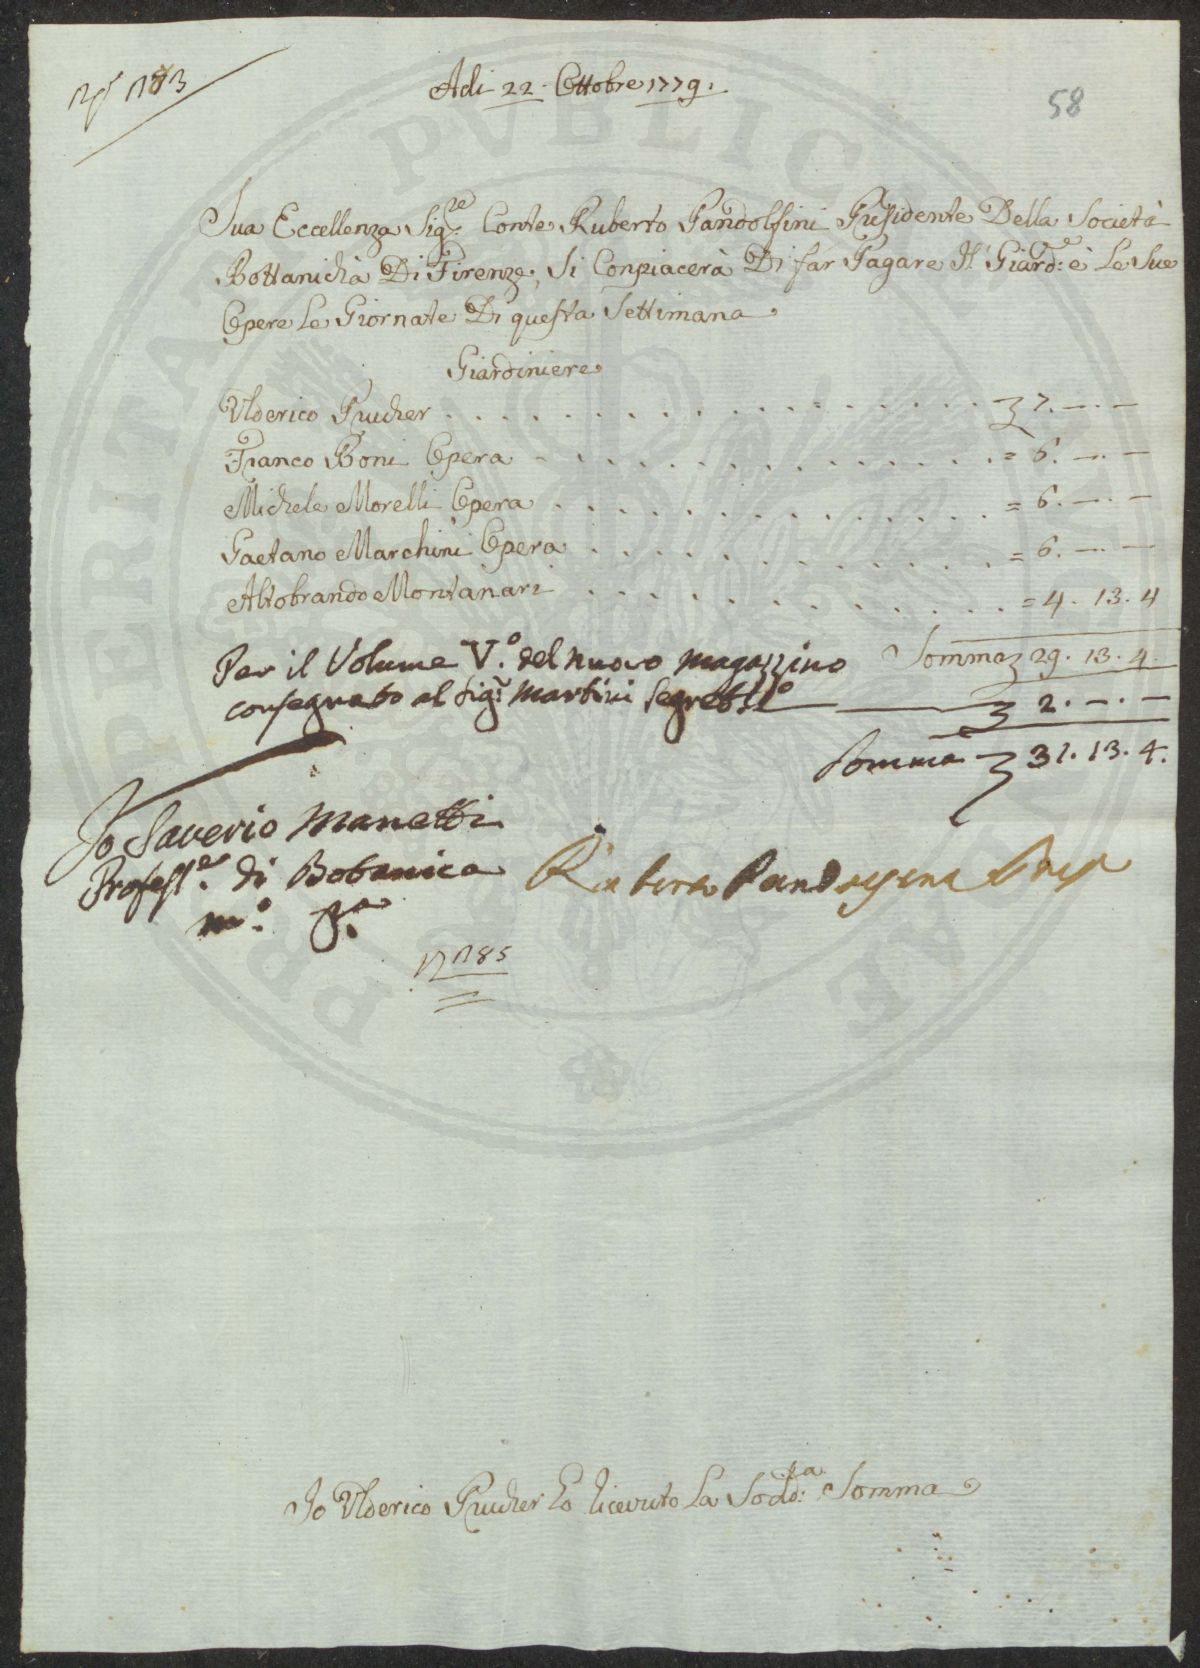 Nº 183
Adi 22 Ottobre 1779.
58
Sua Eccellenza Sig:re Conte Ruberto Pandolfini Presidente Della Società
Bottanicha Di Firenze, Si Conpiacerà Di far Pagare Il Giard:e è Le Sue
Opere Le Giornate Di questa Settimana
Giardiniere
Ulderico Prucher . . . . . . . . . . . . . . . 7. — . —
Franco Boni Opera - . . . . . . . . . . . = 6. — . —
Michele Morelli Opera . . . . . . . . . . . = 6. — . —
Gaetano Marchini Opera . . . . . . . . . . = 6. — . —
Altobrando Montanari . . . . . . . . . . = 4. 13. 4
Somma 29. 13. 4.
Per il Volume V.º del nuovo magazzino
consegnato al Sig:r Martini Segret:rio — 2. — . —
Somma 31. 13. 4.
Io Saverio Manetti
Profess:re di Botanica
mº. pª.
Ruberto Pandolfini Pres
Nº 185
Io Ulderico Prucher ho ricevuto La Sod:ta Somma
PERITAT PVBLICA